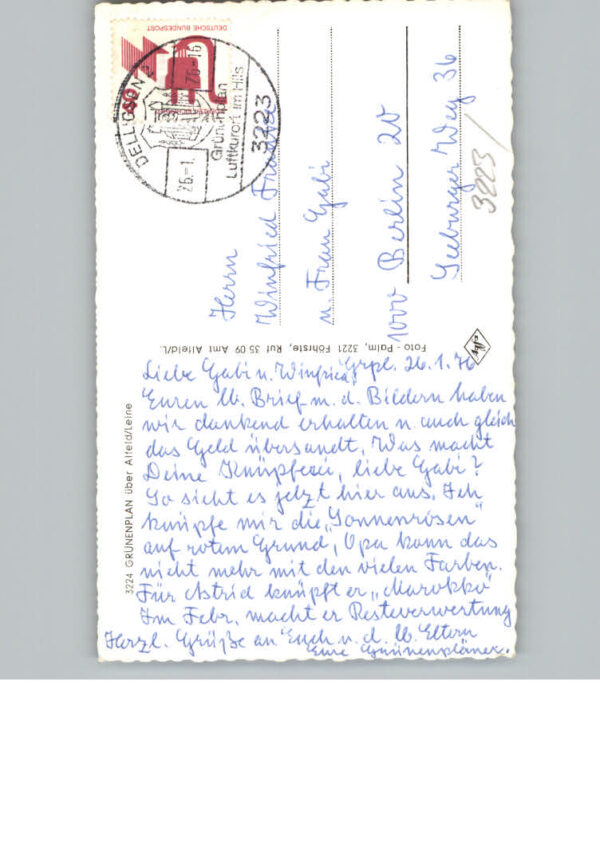 DEUTSCHE BUNDESPOST
40
DELLIGSEN
26.-1. 76-16
Grünenplan
Luftkurort im Hils
3223
Herrn
Winfried
u. Frau Gabi
1000 Berlin 20
Seeburger Weg 36
3223/
Agfa
Foto - Palm, 3221 Föhrste, Ruf 35 09 Amt Alfeld/L.
3224 GRÜNENPLAN über Alfeld/Leine
Grpl. 26.1.76
Liebe Gabi u. Winfried,
Euren lb. Brief m. d. Bildern haben
wir dankend erhalten u. auch gleich
das Geld übersandt. Was macht
Deine Knüpferei, liebe Gabi?
So sieht es jetzt hier aus. Ich
knüpfe mir die „Sonnenrosen"
auf rotem Grund, Opa kann das
nicht mehr mit den vielen Farben.
Für Astrid knüpft er „Marokko"
Im Febr. macht er Resteverwertung
Herzl. Grüße an Euch u. d. lb. Eltern
Eure Grünenpläner.